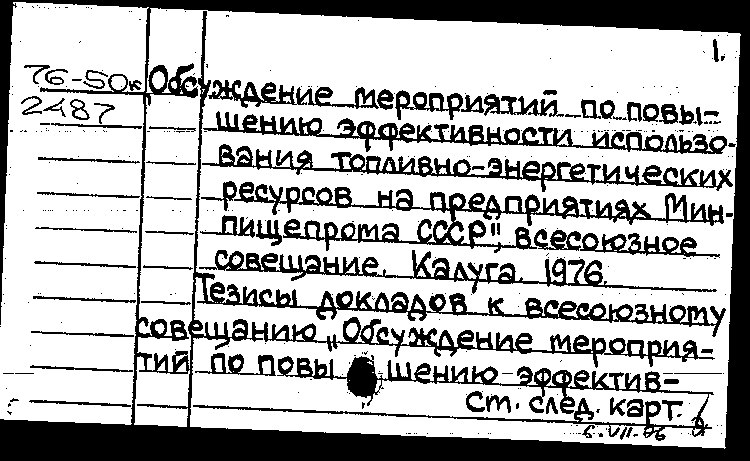 1.
76-50к „Обсуждение мероприятий по повы-
2487 шению эффективности использо-
вания топливно-энергетических
ресурсов на предприятиях Мин-
пищепрома СССР", всесоюзное
совещание. Калуга. 1976.
Тезисы докладов к всесоюзному
совещанию „Обсуждение мероприя-
тий по повы шению эффектив-
См. след. карт.